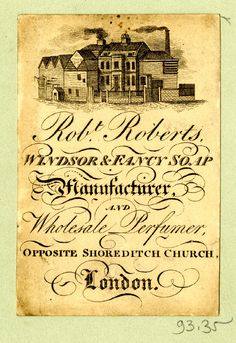 Robt. Roberts,
WINDSOR & FANCY SOAP
Manufacturer,
AND
Wholesale Perfumer,
OPPOSITE SHOREDITCH CHURCH,
London.
93.35